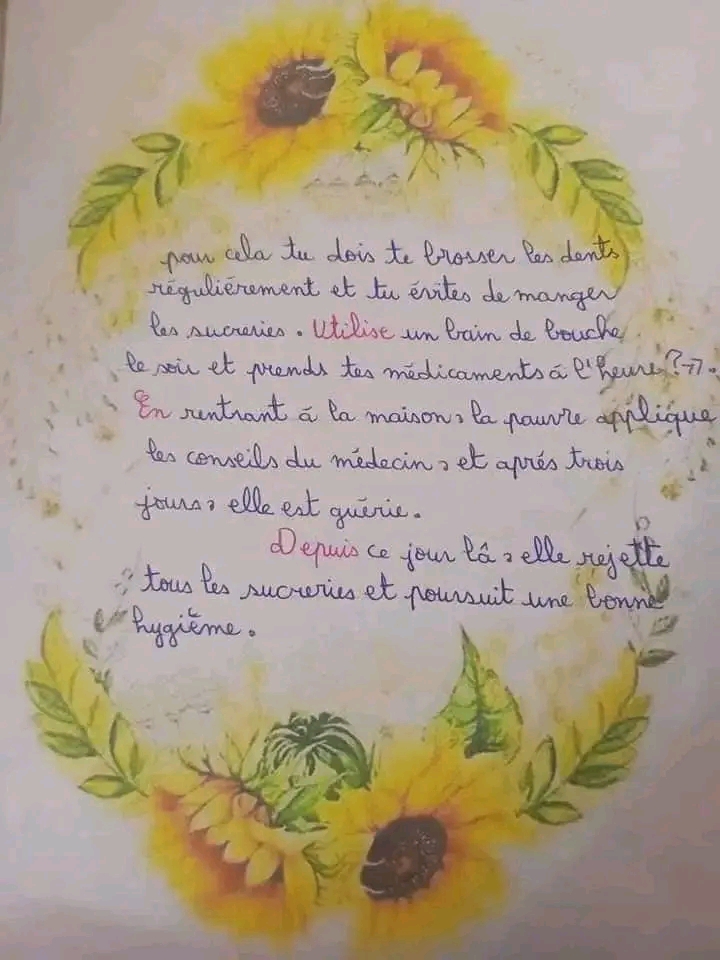 pour cela tu dois te brosser les dents
réguliérement et tu évites de manger
les sucreries. Utilise un bain de bouche
le soir et prends tes médicaments á l'heure ?».
En rentrant á la maison, la pauvre applique
les conseils du médecin, et aprés trois
jours, elle est guérie.
Depuis ce jour lâ, elle rejette
tous les sucreries et poursuit une bonne
hygiéme.